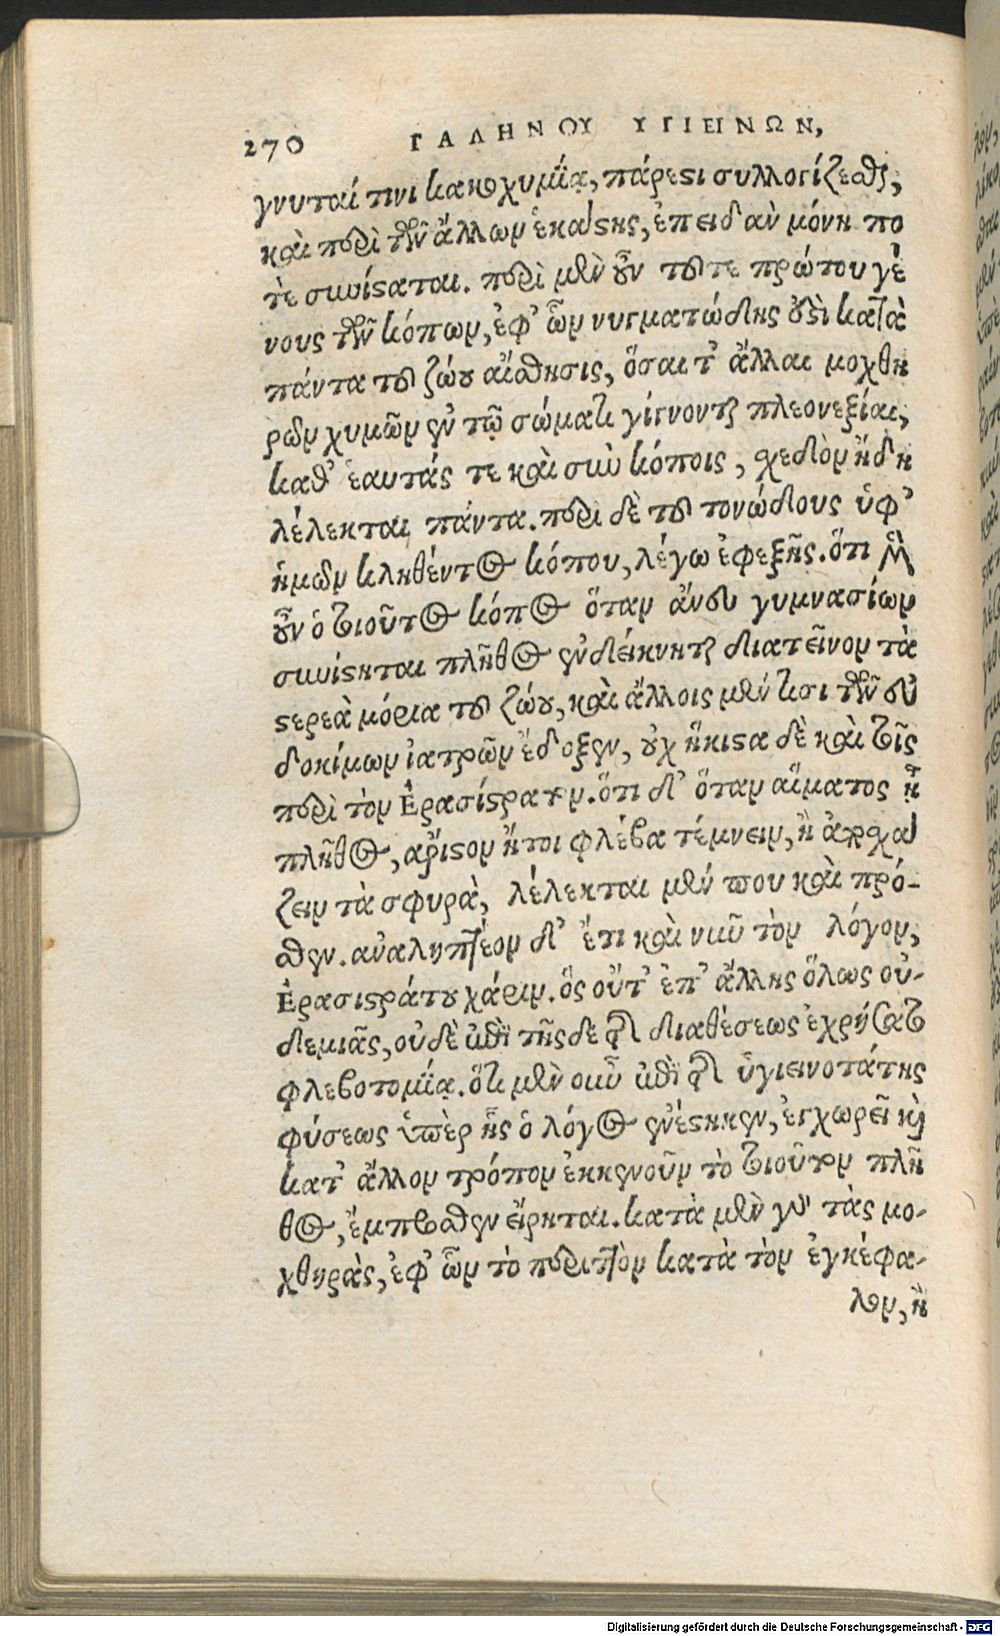 270 ΓΑΛΗΝΟΥ ΥΓΙΕΙΝΩΝ,
γνυταί τινι κακοχυμίᾳ, πάρεστι συλλογίζεσθαι,
καὶ περὶ τῶν ἄλλων ἑκάστης, ἐπειδ ἀν μόνη πο
τὲ συνίσταται. περὶ μὲν οὖν τοῦ τε πρώτου γέ
νους τῶν κόπων, ἐφ' ὧν νυγματώδης ἐστὶ κατὰ
πάντα τοῦ ζώου αἴσθησις, ὅσαι τ' ἄλλαι μοχθη
ρῶν χυμῶν ἐν τῷ σώματι γίγνονται πλεονεξίαι,
καθ' ἑαυτάς τε καὶ σὺν κόποις, σχεδὸν ἤδη
λέλεκται πάντα. περὶ δὲ τοῦ τονώδους ὑφ'
ἡμῶν κληθέντος κόπου, λέγω ἐφεξῆς. ὅτι μὲν
οὖν ὁ τοιοῦτος κόπος ὅταν ἄνευ γυμνασίων
συνίστηται πλῆθος ἐνδείκνηται διατεῖνον τὰ
στερεὰ μόρια τοῦ ζώου, καὶ ἄλλοις μέν τισι τῶν εὐ
δοκίμων ἰατρῶν ἔδοξεν, οὐχ ἥκιστα δὲ καὶ τοῖς
περὶ τὸν Ἐρασίστρατον. ὅτι δ' ὅταν αἵματος ᾖ
πλῆθος, ἄριστον ἤτοι φλέβα τέμνειν, ἢ ἀποσχά
ζειν τὰ σφυρὰ, λέλεκται μέν που καὶ πρό-
σθεν. ἀναληπτέον δ' ἔτι καὶ νῦν τὸν λόγον,
Ἐρασιστράτου χάριν. ὃς οὔτ' ἐπ' ἄλλης ὅλως οὐ-
δεμιᾶς, οὐδὲ ἐπὶ τῆς δε τῆς διαθέσεως ἐχρήσατο
φλεβοτομίᾳ. ὅτι μὲν οὖν ἐπὶ τῆς ὑγιεινοτάτης
φύσεως ὑπὲρ ἧς ὁ λόγος ἐνέστηκεν, ἐγχωρεῖ καὶ
κατ' ἄλλον τρόπον ἐκκενοῦν τὸ τοιοῦτον πλῆ
θος, ἔμπροσθεν εἴρηται. κατὰ μὲν γὰρ τὰς μο-
χθηρὰς, ἐφ' ὧν τὸ περιττὸν κατὰ τὸν ἐγκέφα-
λον, ἢ
Digitalisierung gefördert durch die Deutsche Forschungsgemeinschaft - DFG